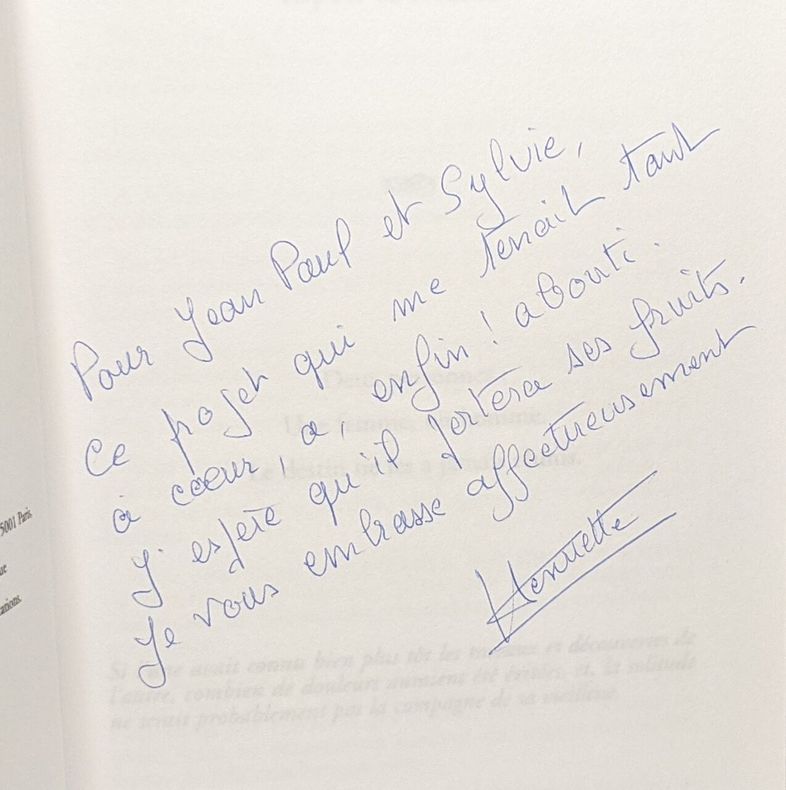 Pour Jean Paul et Sylvie,
Ce projet qui me tenait tant
à coeur, a, enfin ! abouti.
J'espère qu'il portera ses fruits.
Je vous embrasse affectueusement
Henriette
5001 Paris
Si l'une avait connu bien plus tôt les et découvertes de
l'autre, combien de douleurs auraient été évitées, et, la solitude
ne serait probablement pas la compagne de sa vieillesse.